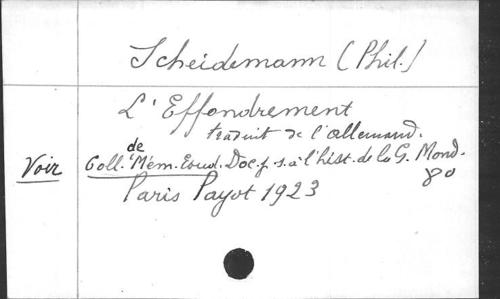 Scheidemann (Phil.)
L'Effondrement
traduit de l'allemand.
Voir Coll. de Mém. Etud. Doc. p. s. à l'hist. de la G. Mond.
Paris Payot 1923 80